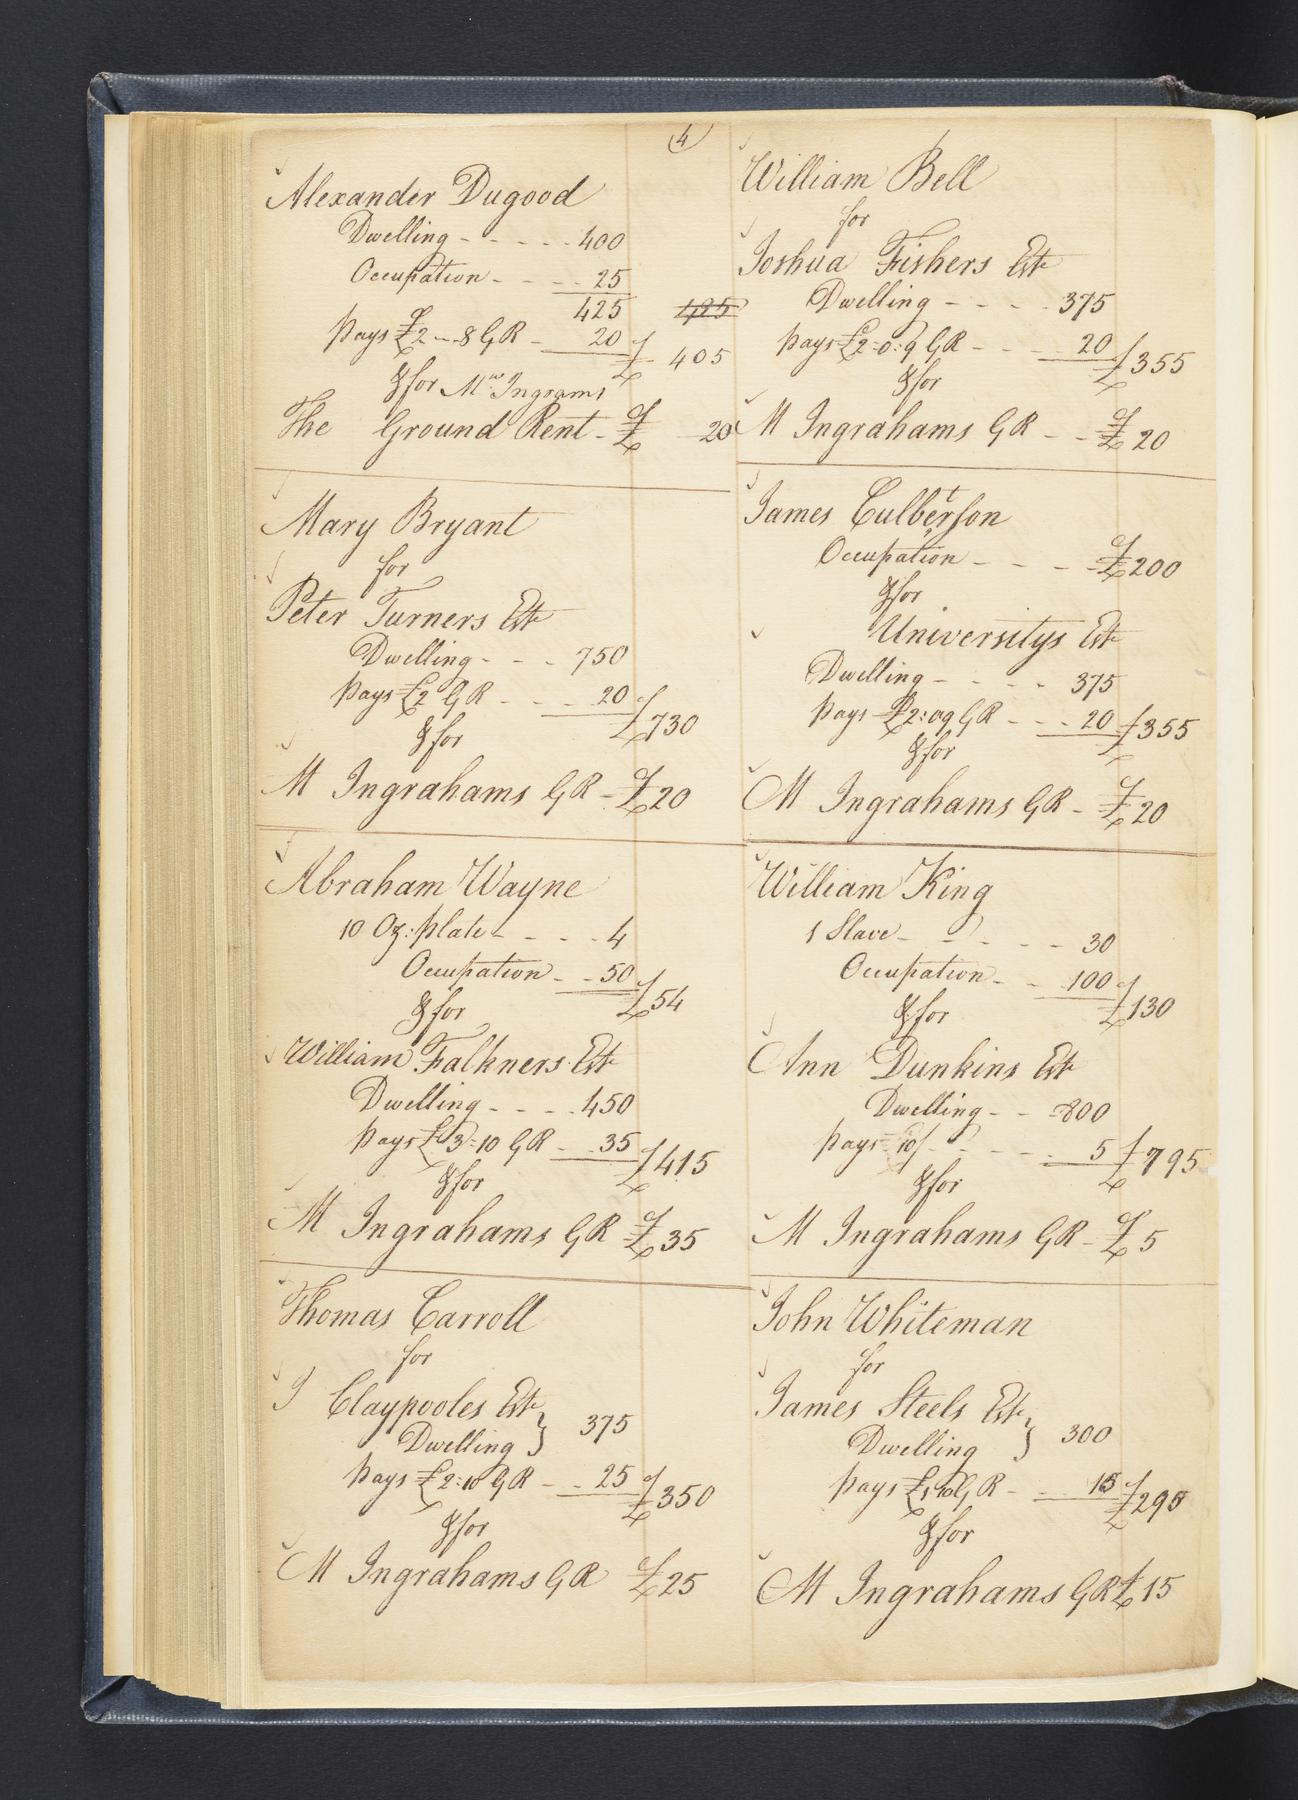 (4)
Alexander Dugood
Dwelling - - - - - 400
Occupation - - - - 25
425 425
Pays £2 -- 8 GR - 20
£ 405
& for Mrs Ingrams
The Ground Rent - £ 20
Mary Bryant
for
Peter Turners Este
Dwelling - - - 750
Pays £2 GR - - - 20
£730
& for
M Ingrahams GR - £20
Abraham Wayne
10 Oz: plate - - - - 4
Occupation - - 50
£54
& for
William Falkners Este
Dwelling - - - - 450
Pays £3=10 GR - - 35
£415
& for
M Ingrahams GR £35
Thomas Carroll
for
J Claypooles Este
Dwelling } 375
Pays £2=10 GR - - 25
£350
& for
M Ingrahams GR £25
William Bell
for
Joshua Fishers Este
Dwelling - - - - 375
Pays £2=0=9 GR - - - 20
£355
& for
M Ingrahams GR - - £20
James Culbertson
Occupation - - - £200
& for
Universitys Este
Dwelling - - - - 375
Pays £2:09 GR - - - 20
£355
& for
M Ingrahams GR - £20
William King
1 Slave - - - - - 30
Occupation - - 100
£130
& for
Ann Dunkins Este
Dwelling - - 800
Pays 10/ - - - - - 5
£795
& for
M Ingrahams GR - £5
John Whiteman
for
James Steels Este
Dwelling } 300
Pays £1 10 GR - - - 15
£295
& for
M Ingrahams GR £15